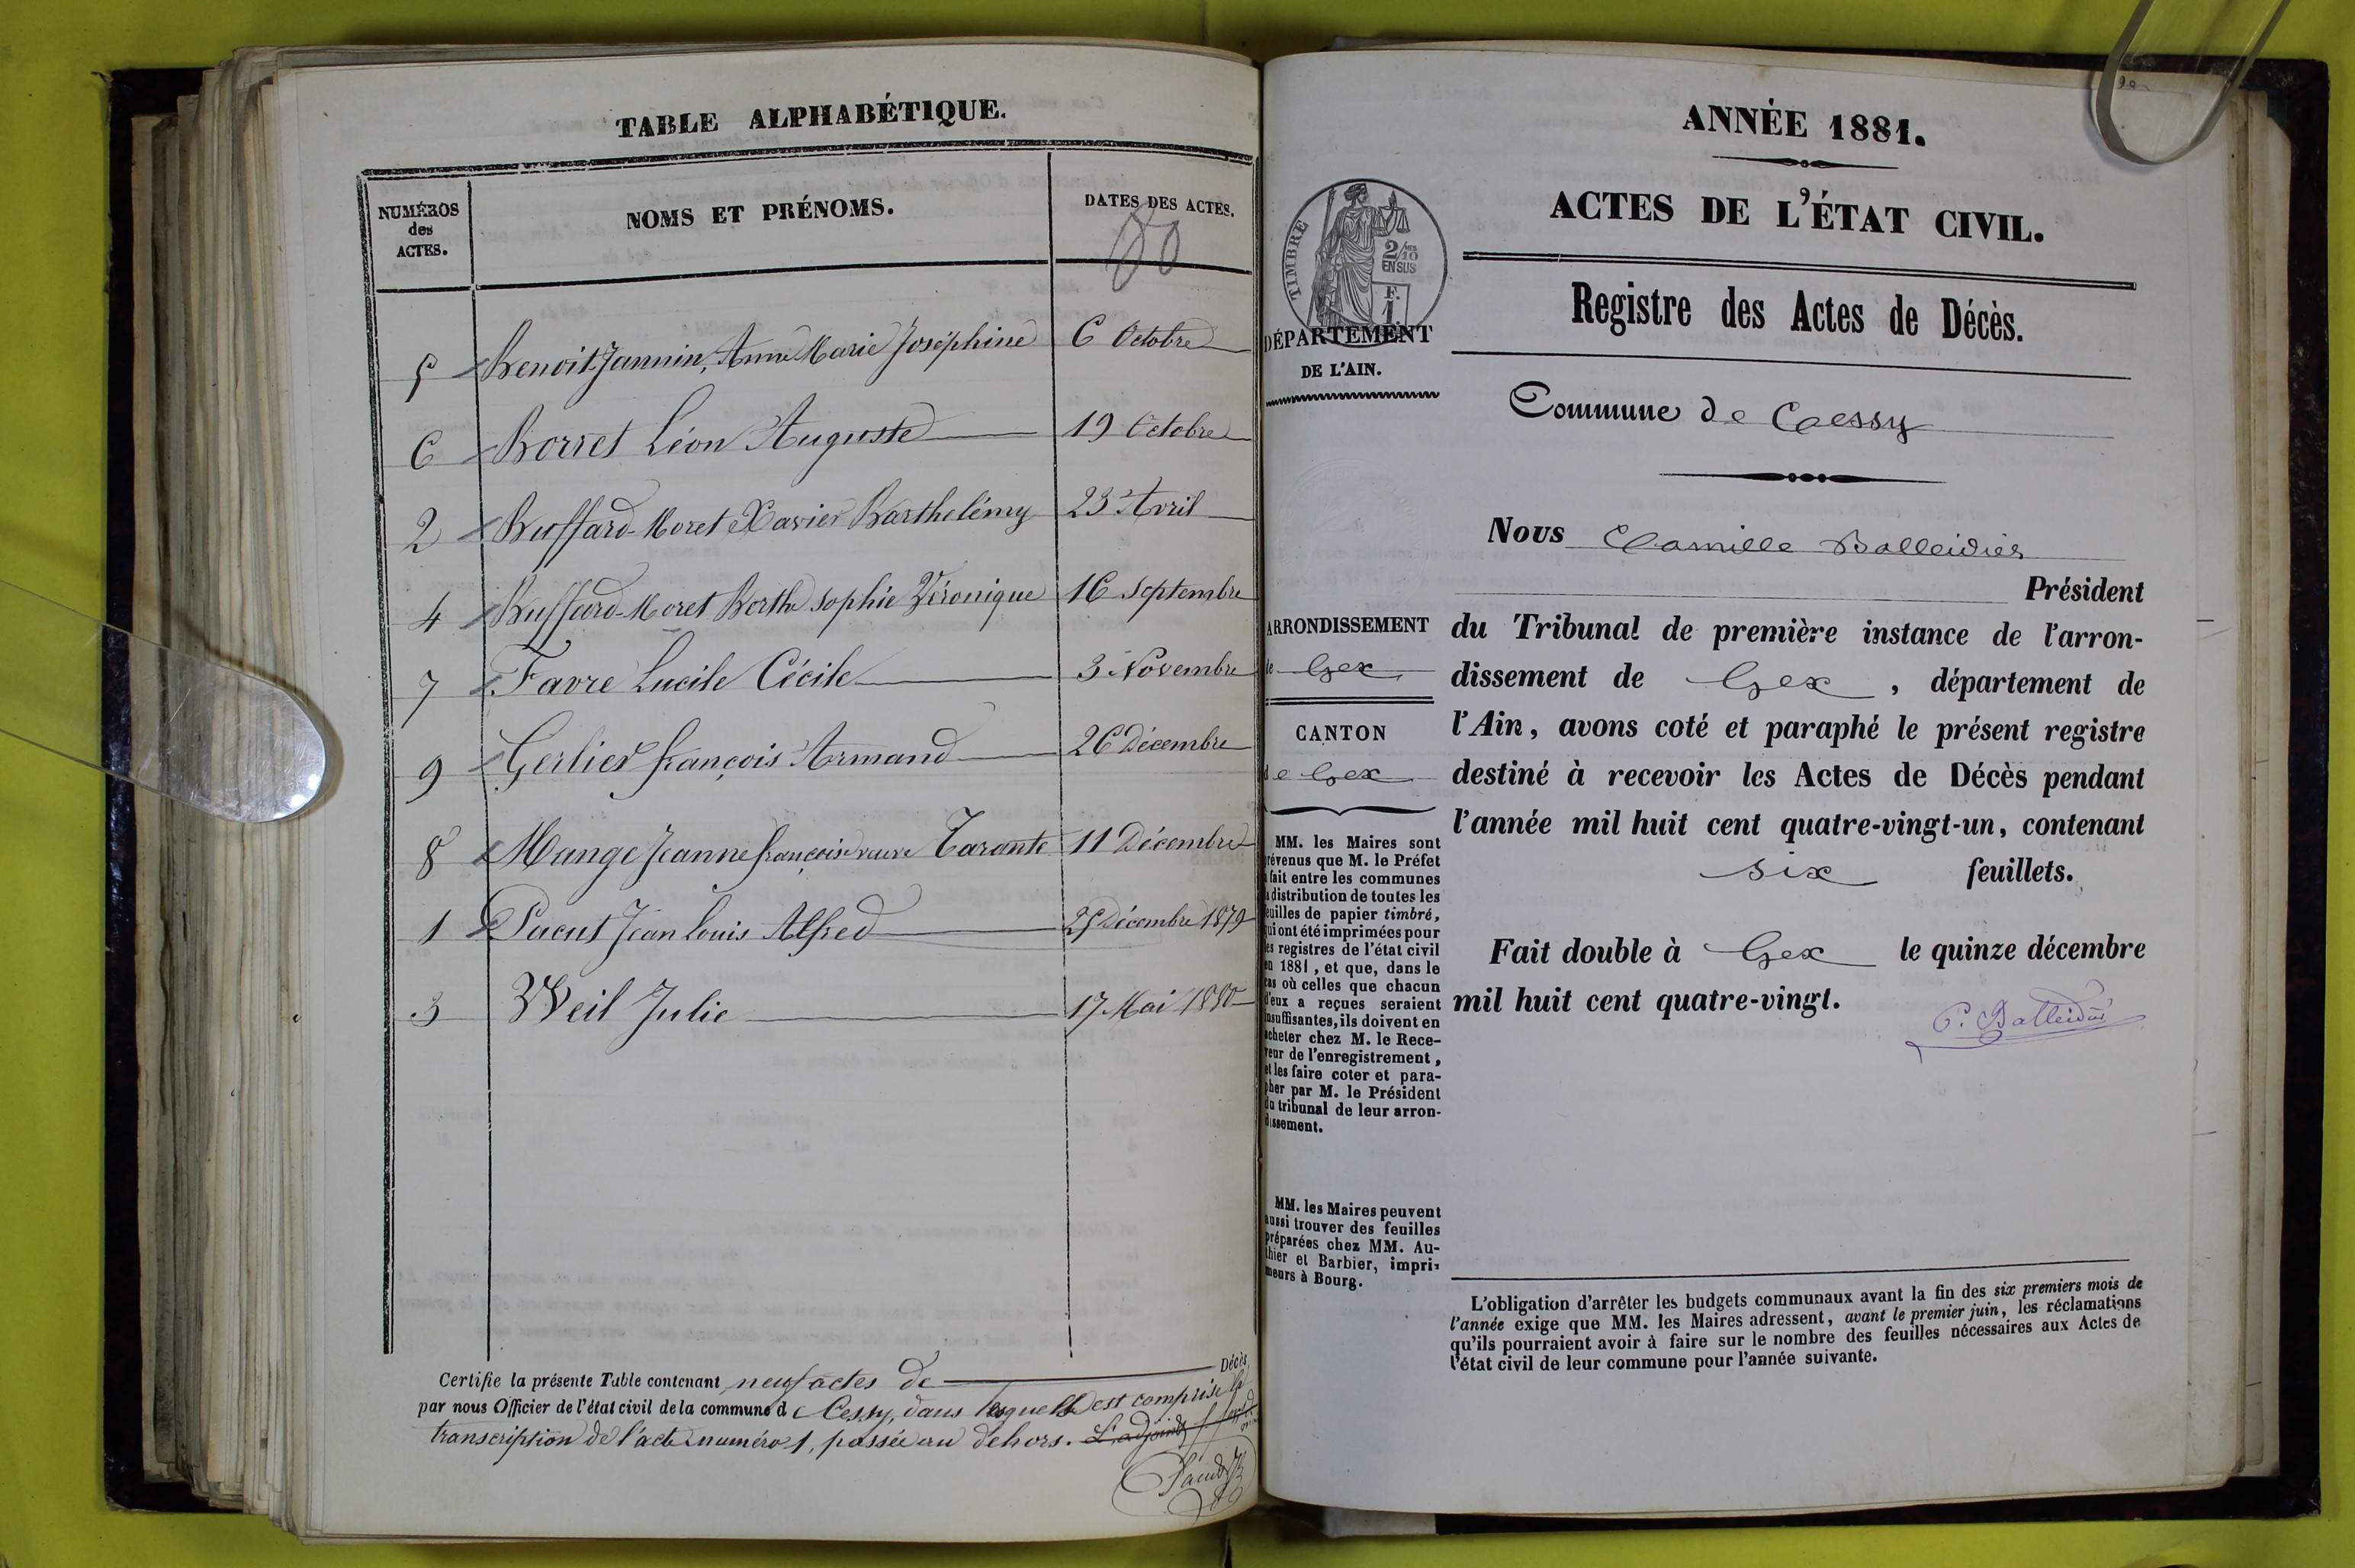 TABLE ALPHABÉTIQUE.
NUMÉROS des ACTES.
NOMS ET PRÉNOMS.
DATES DES ACTES.
80
5 Benoit-Jannin, Anne Marie Joséphine 6 Octobre
6 Borret Léon Auguste 19 Octobre
2 Buffard-Moret Xavier Barthelémy 23 Avril
4 Buffard-Moret Berthe Sophie Véronique 16 Septembre
7 Favre Lucile Cécile 3 Novembre
9 Gerlier François Armand 26 Décembre
8 Mange Jeanne Françoise veuve Tarante 11 Décembre
1 Pacut Jean Louis Alfred 25 Décembre 1879
3 Weil Julie 17 Mai 1880
Certifie la présente Table contenant neuf actes de Décès,
par nous Officier de l'état civil de la commune d Cessy, dans lesquels est comprise la
transcription de l'acte numéro 1, passée au dehors. L'adjoint
ANNÉE 1881.
ACTES DE L'ÉTAT CIVIL.
TIMBRE
2/10
EN SUS
F.
1.
DÉPARTEMENT
DE L'AIN.
Registre des Actes de Décès.
Commune de Cessy
Nous Camille Balleidier
Président
du Tribunal de première instance de l'arron-
dissement de Gex, département de
l'Ain, avons coté et paraphé le présent registre
destiné à recevoir les Actes de Décès pendant
l'année mil huit cent quatre-vingt-un, contenant
six feuillets.
Fait double à Gex le quinze décembre
mil huit cent quatre-vingt.
C. Balleidier
ARRONDISSEMENT
de Gex
CANTON
de Gex
MM. les Maires sont
prévenus que M. le Préfet
a fait entre les communes
la distribution de toutes les
feuilles de papier timbré,
qui ont été imprimées pour
les registres de l'état civil
en 1881, et que, dans le
cas où celles que chacun
d'eux a reçues seraient
insuffisantes, ils doivent en
acheter chez M. le Rece-
veur de l'enregistrement,
et les faire coter et para-
pher par M. le Président
du tribunal de leur arron-
dissement.
MM. les Maires peuvent
aussi trouver des feuilles
préparées chez MM. Au-
thier et Barbier, impri-
meurs à Bourg.
L'obligation d'arrêter les budgets communaux avant la fin des six premiers mois de
l'année exige que MM. les Maires adressent, avant le premier juin, les réclamations
qu'ils pourraient avoir à faire sur le nombre des feuilles nécessaires aux Actes de
l'état civil de leur commune pour l'année suivante.